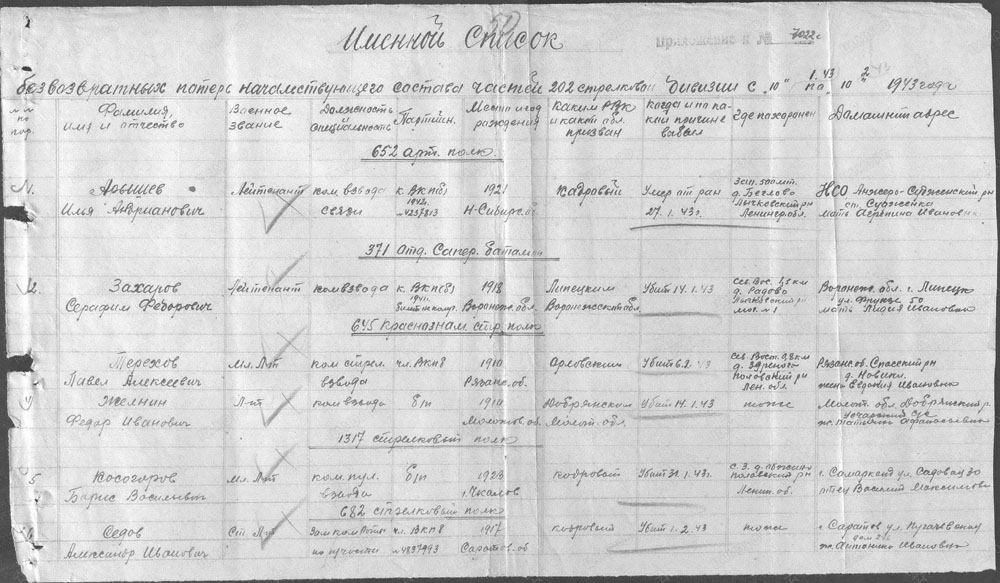 Именной Список
Приложение к № 7022с
безвозвратных потерь начальствующего состава частей 202 стрелковой дивизии с "10" 1.43 по 10 2 1943 года
№ № по пор. Фамилия, имя и отчество Военное звание Должность специальность Партийн. Место и год рождения каким РВК и какой обл. призван когда и по какой причине выбыл Где похоронен Домашний адрес
652 арт. полк
1. Арышев Лейтенант ком взвода к. ВКП(б) 1921 Кадровый Умер от ран д. Беглово НСО Анжеро-Судженский рн
Илья Андрианович связи 1942. №4237813 Н-Сибирс. об. 27.1.43г. Лычковский рн Ленингр. обл. ст. Судженка мать Агрепина Ивановна
371 отд. Сапер. Батальон
2. Захаров Лейтенант ком взвода к. ВКП(б) 1918 Липецким Убит 14.1.43 д. Радово Воронеж. обл. г. Липецк
Серафим Федорович 1941. Воронеж. обл. Воронежской обл. Лычковский р-н ул. Фрунзе 50 мать Лидия Ивановна
645 Краснознам. стр. полк
Терехов Мл. Л-т ком стрел. чл. ВКПб 1910 Орловским Убит 6.2.43 Сев. Вост. 0,8 км Рязанс. об. Спасский рн
Павел Алексеевич взвода Рязанс. об. Половский рн Лен. обл. д. Новики жена Евдокия Ивановна
Желнин Л-т ком взвода б/п 1910 Добрянским Убит 14.1.43 тоже Молот. обл. Добрянский р.
Федор Иванович Молотов. об. Молот. обл. ж. Татьяна Афанасьевна
1317 стрелковый полк
5 Косогоров Мл. Л-т ком. пул. б/п 1923 кадровый Убит 31.1.43г. Половский рн г. Самарканд ул. Садовая 30
Борис Васильевич взвода г. Чкалов Ленин. об. отец Василий Максимович
682 стрелковый полк
6 Седов Ст. Л-т Зам ком Роты чл. ВКПб 1917 кадровый Убит 1.2.43 тоже г. Саратов ул. Пугачевская
Александр Иванович №4837493 Саратов. об ж. Антонина Ивановна